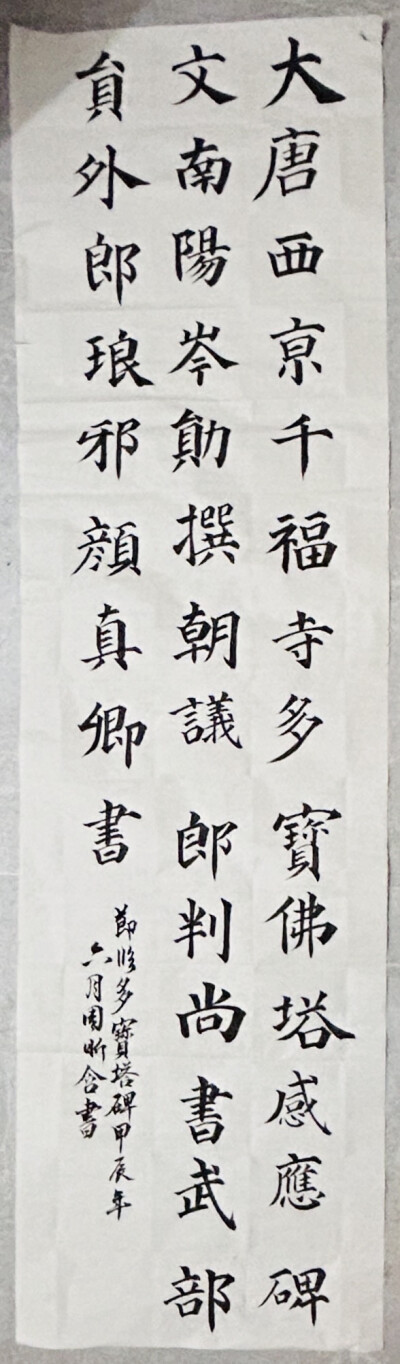 大唐西京千福寺多寶佛塔感應碑
文南陽岑勛撰朝議郎判尚書武部
員外郎琅邪顏真卿書
節臨多寶塔碑甲辰年
六月周昕含書